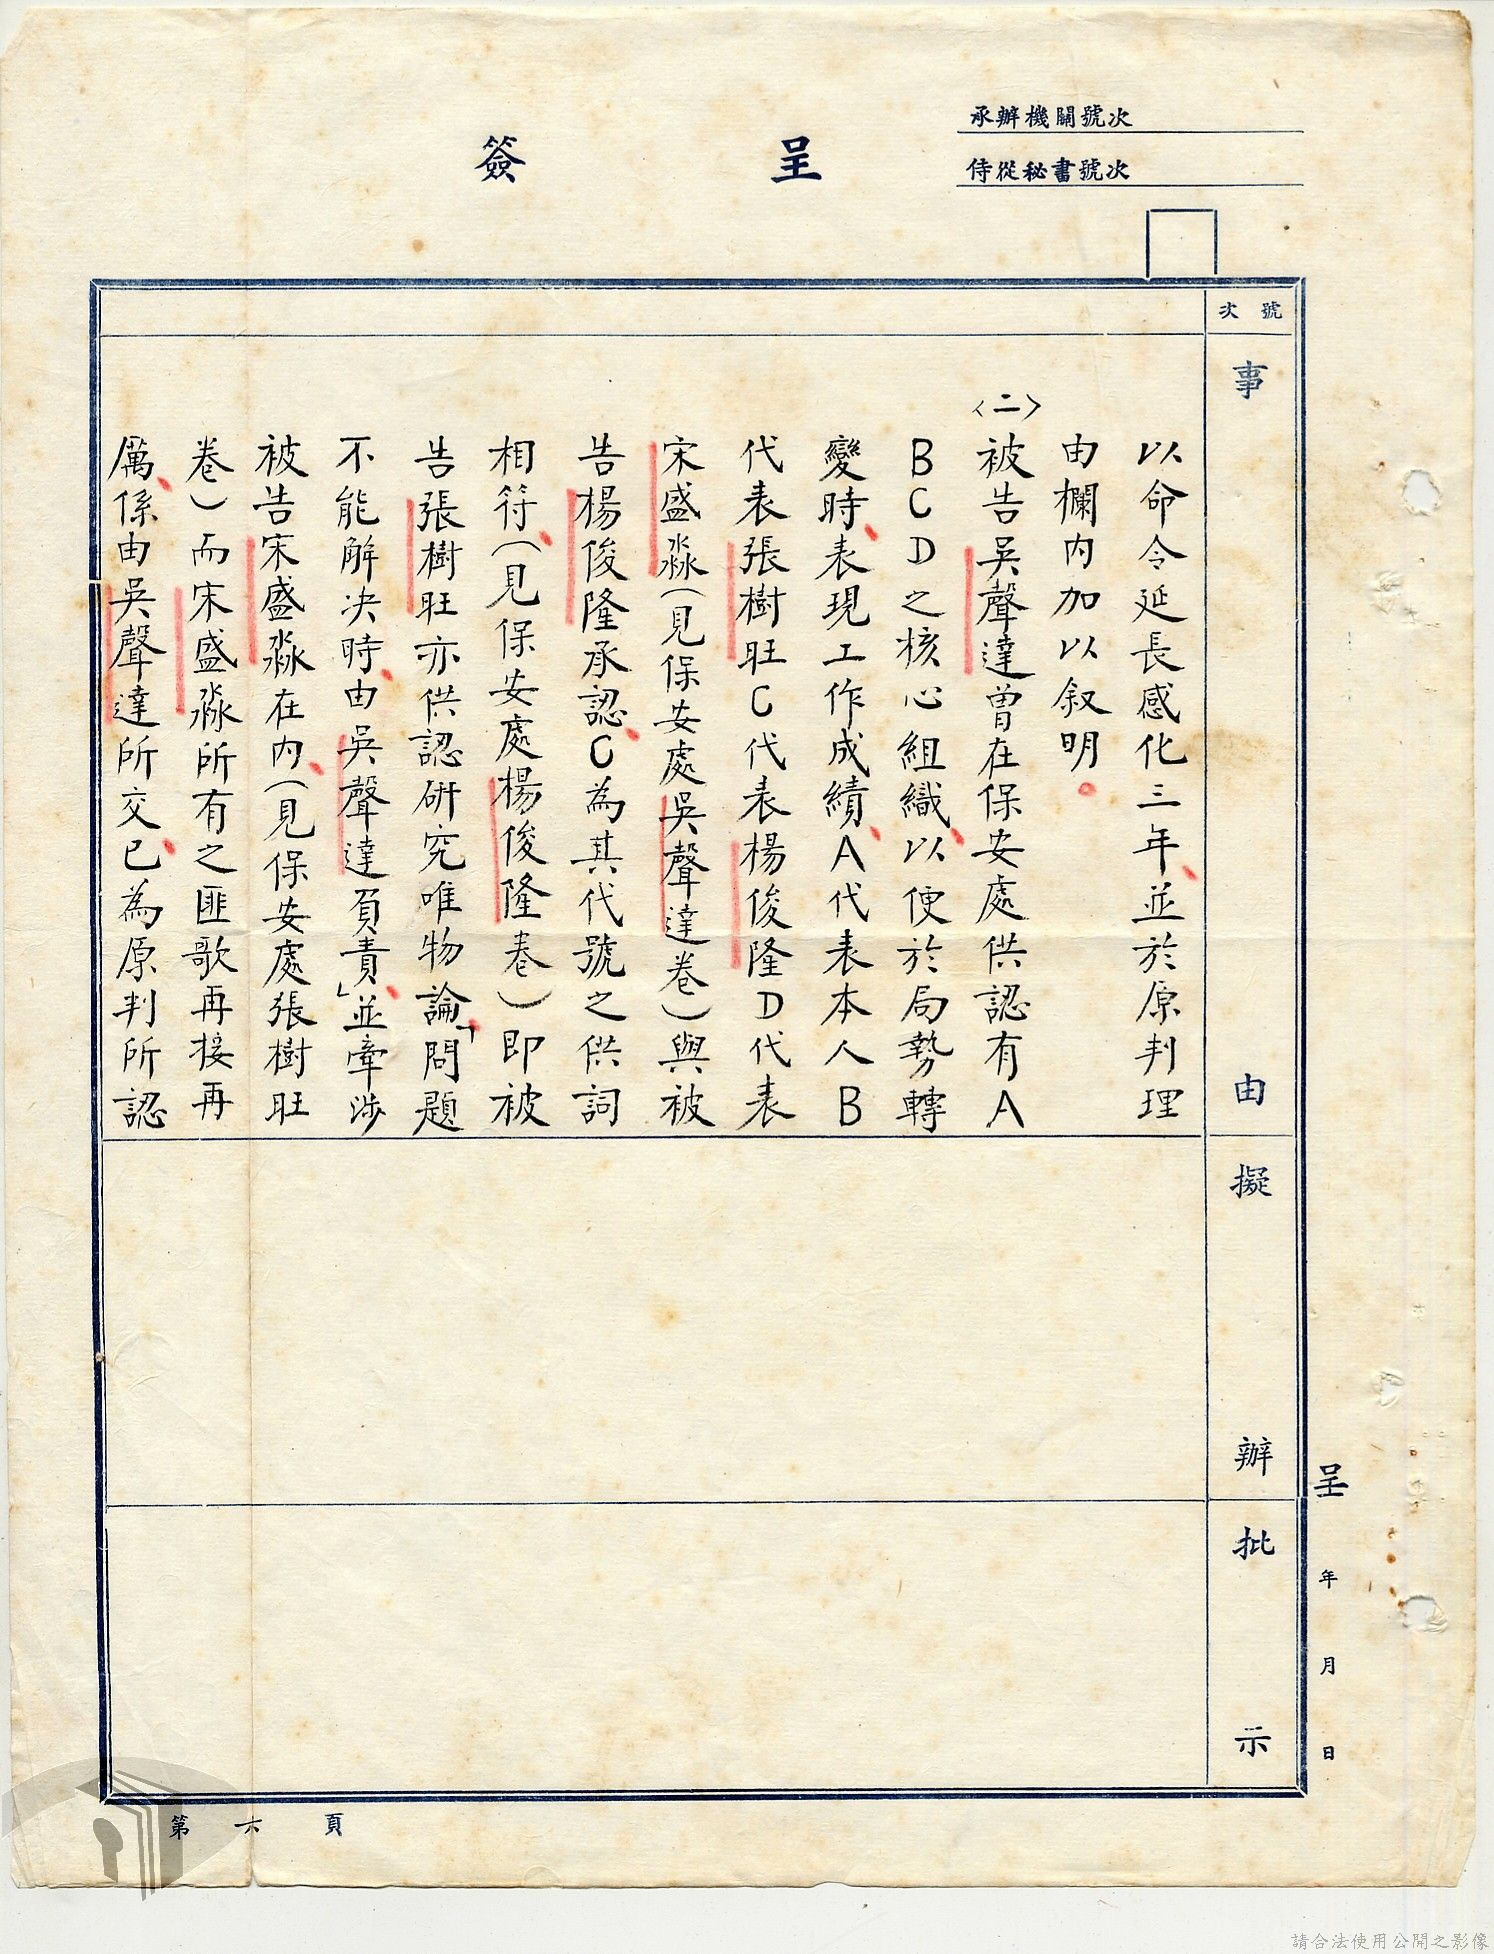 承辦機關號次
侍從秘書號次
簽呈
號次
事由
擬辦
批示
以命令延長感化三年、並於原判理
由欄內加以叙明。
〈二〉被告吳聲達曾在保安處供認有A
BCD之核心組織、以便於局勢轉
變時、表現工作成績、A代表本人B
代表張樹旺C代表楊俊隆D代表
宋盛淼（見保安處吳聲達卷）與被
告楊俊隆承認、C為其代號之供詞
相符、（見保安處楊俊隆卷）即被
告張樹旺亦供認研究唯物論、「問題
不能解决時、由吳聲達負責」、並牽涉
被告宋盛淼在內、（見保安處張樹旺
卷）而宋盛淼所有之匪歌再接再
厲、係由吳聲達所交、已為原判所認
呈 年 月 日
第六頁
請合法使用公開之影像